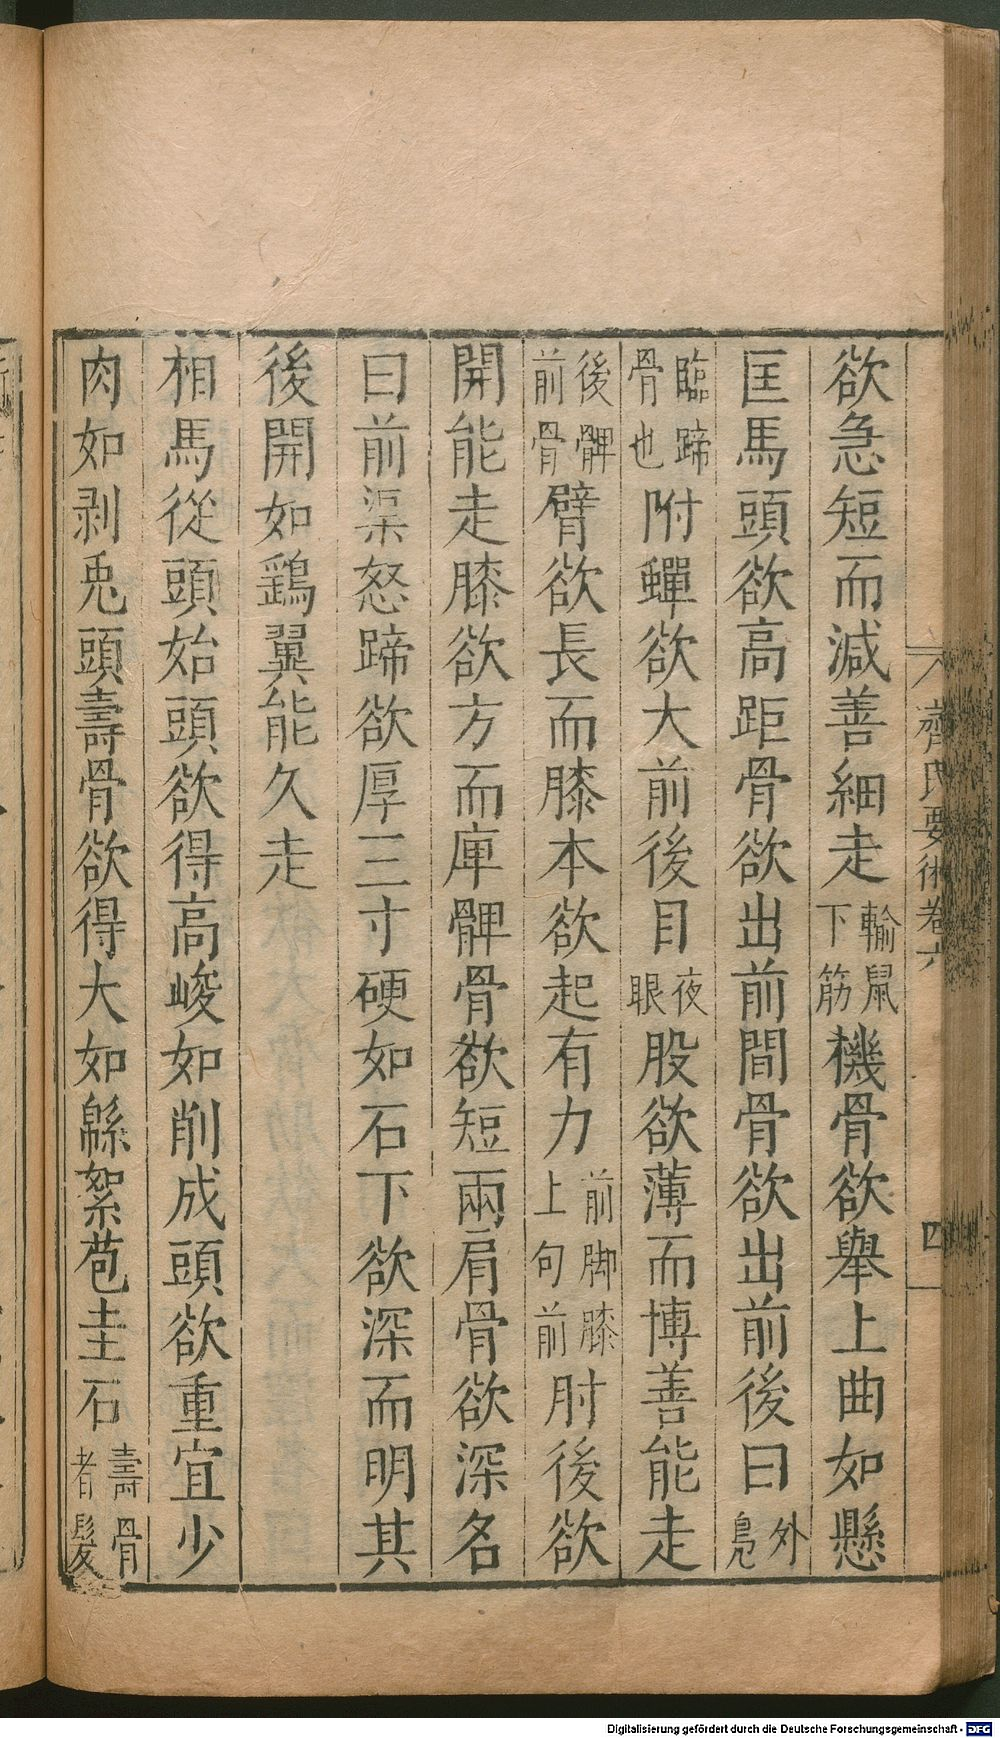 欲急短而減善細走輸鼠下筋機骨欲舉上曲如懸
匡馬頭欲高距骨欲出前間骨欲出前後曰外鳧
臨蹄骨也附蟬欲大前後目夜眼股欲薄而博善能走
後髀前骨臂欲長而膝本欲起有力前脚膝上句前肘後欲
開能走膝欲方而庳髀骨欲短兩肩骨欲深名
曰前渠怒蹄欲厚三寸硬如石下欲深而明其
後開如鷄翼能久走
相馬從頭始頭欲得高峻如削成頭欲重宜少
肉如剥兎頭壽骨欲得大如緜絮苞圭石壽骨者髮
齊民要術卷六
四
Digitalisierung gefördert durch die Deutsche Forschungsgemeinschaft - DFG